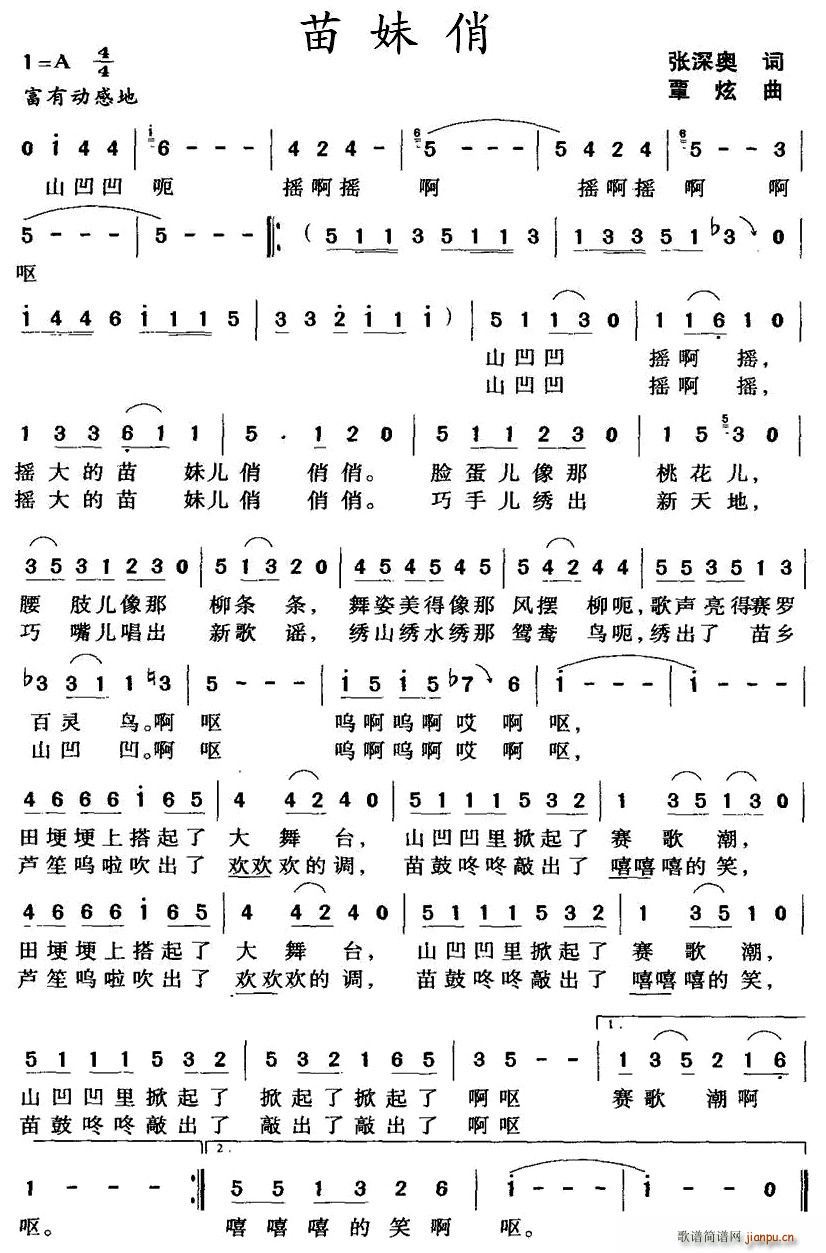 苗妹俏
1=A 4/4
张深奥 词
富有动感地
覃炫 曲
0 i 4 4 | 6 - - - | 4 2 4 - | 5 - - - | 5 4 2 4 | 5 - - 3 |
山凹凹 呃 摇啊摇 啊 摇啊摇 啊 啊
5 - - - | 5 - - - ‖: ( 5 1 1 3 5 1 1 3 | 1 3 3 5 1 ♭3 0 |
呕
i 4 4 6 i 1 1 5 | 3 3 2 i 1 i ) | 5 1 1 3 0 | 1 1 6 1 0 |
山凹凹 摇啊 摇,
山凹凹 摇啊 摇,
1 3 3 6 1 1 | 5 . 1 2 0 | 5 1 1 2 3 0 | 1 5 3 0 |
摇大的苗 妹儿俏 俏俏。 脸蛋儿像那 桃花儿,
摇大的苗 妹儿俏 俏俏。 巧手儿绣出 新天地,
3 5 3 1 2 3 0 | 5 1 3 2 0 | 4 5 4 5 4 5 | 5 4 2 4 4 | 5 5 3 5 1 3 |
腰 肢儿像那 柳条 条, 舞姿美得像那 风摆 柳呃,歌声亮得赛罗
巧 嘴儿唱出 新歌 谣, 绣山绣水绣那 鸳鸯 鸟呃,绣出了 苗乡
♭3 3 1 1 ♮3 | 5 - - - | i 5 i 5 ♭7 6 | i - - - | i - - - |
百灵 鸟。啊 呕 呜啊呜啊哎 啊 呕,
山凹 凹。啊 呕 呜啊呜啊哎 啊 呕,
4 6 6 6 i 6 5 | 4 4 2 4 0 | 5 1 1 1 5 3 2 | 1 3 5 1 3 0 |
田埂埂上搭起了 大 舞 台, 山凹凹里掀起了 赛 歌 潮,
芦笙呜啦吹出了 欢欢欢的调, 苗鼓咚咚敲出了 嘻嘻嘻的笑,
4 6 6 6 i 6 5 | 4 4 2 4 0 | 5 1 1 1 5 3 2 | 1 3 5 1 0 |
田埂埂上搭起了 大 舞 台, 山凹凹里掀起了 赛 歌 潮,
芦笙呜啦吹出了 欢欢欢的调, 苗鼓咚咚敲出了 嘻嘻嘻的笑,
1.
5 1 1 1 5 3 2 | 5 3 2 1 6 5 | 3 5 - - | 1 3 5 2 1 6 |
山凹凹里掀起了 掀起了掀起了 啊呕 赛歌 潮啊
苗鼓咚咚敲出了 敲出了敲出了 啊呕
2.
1 - - - :‖ 5 5 1 3 2 6 | i - - - | i - - 0 ‖
呕。 嘻嘻嘻的笑啊 呕。
歌谱简谱网 jianpu.cn